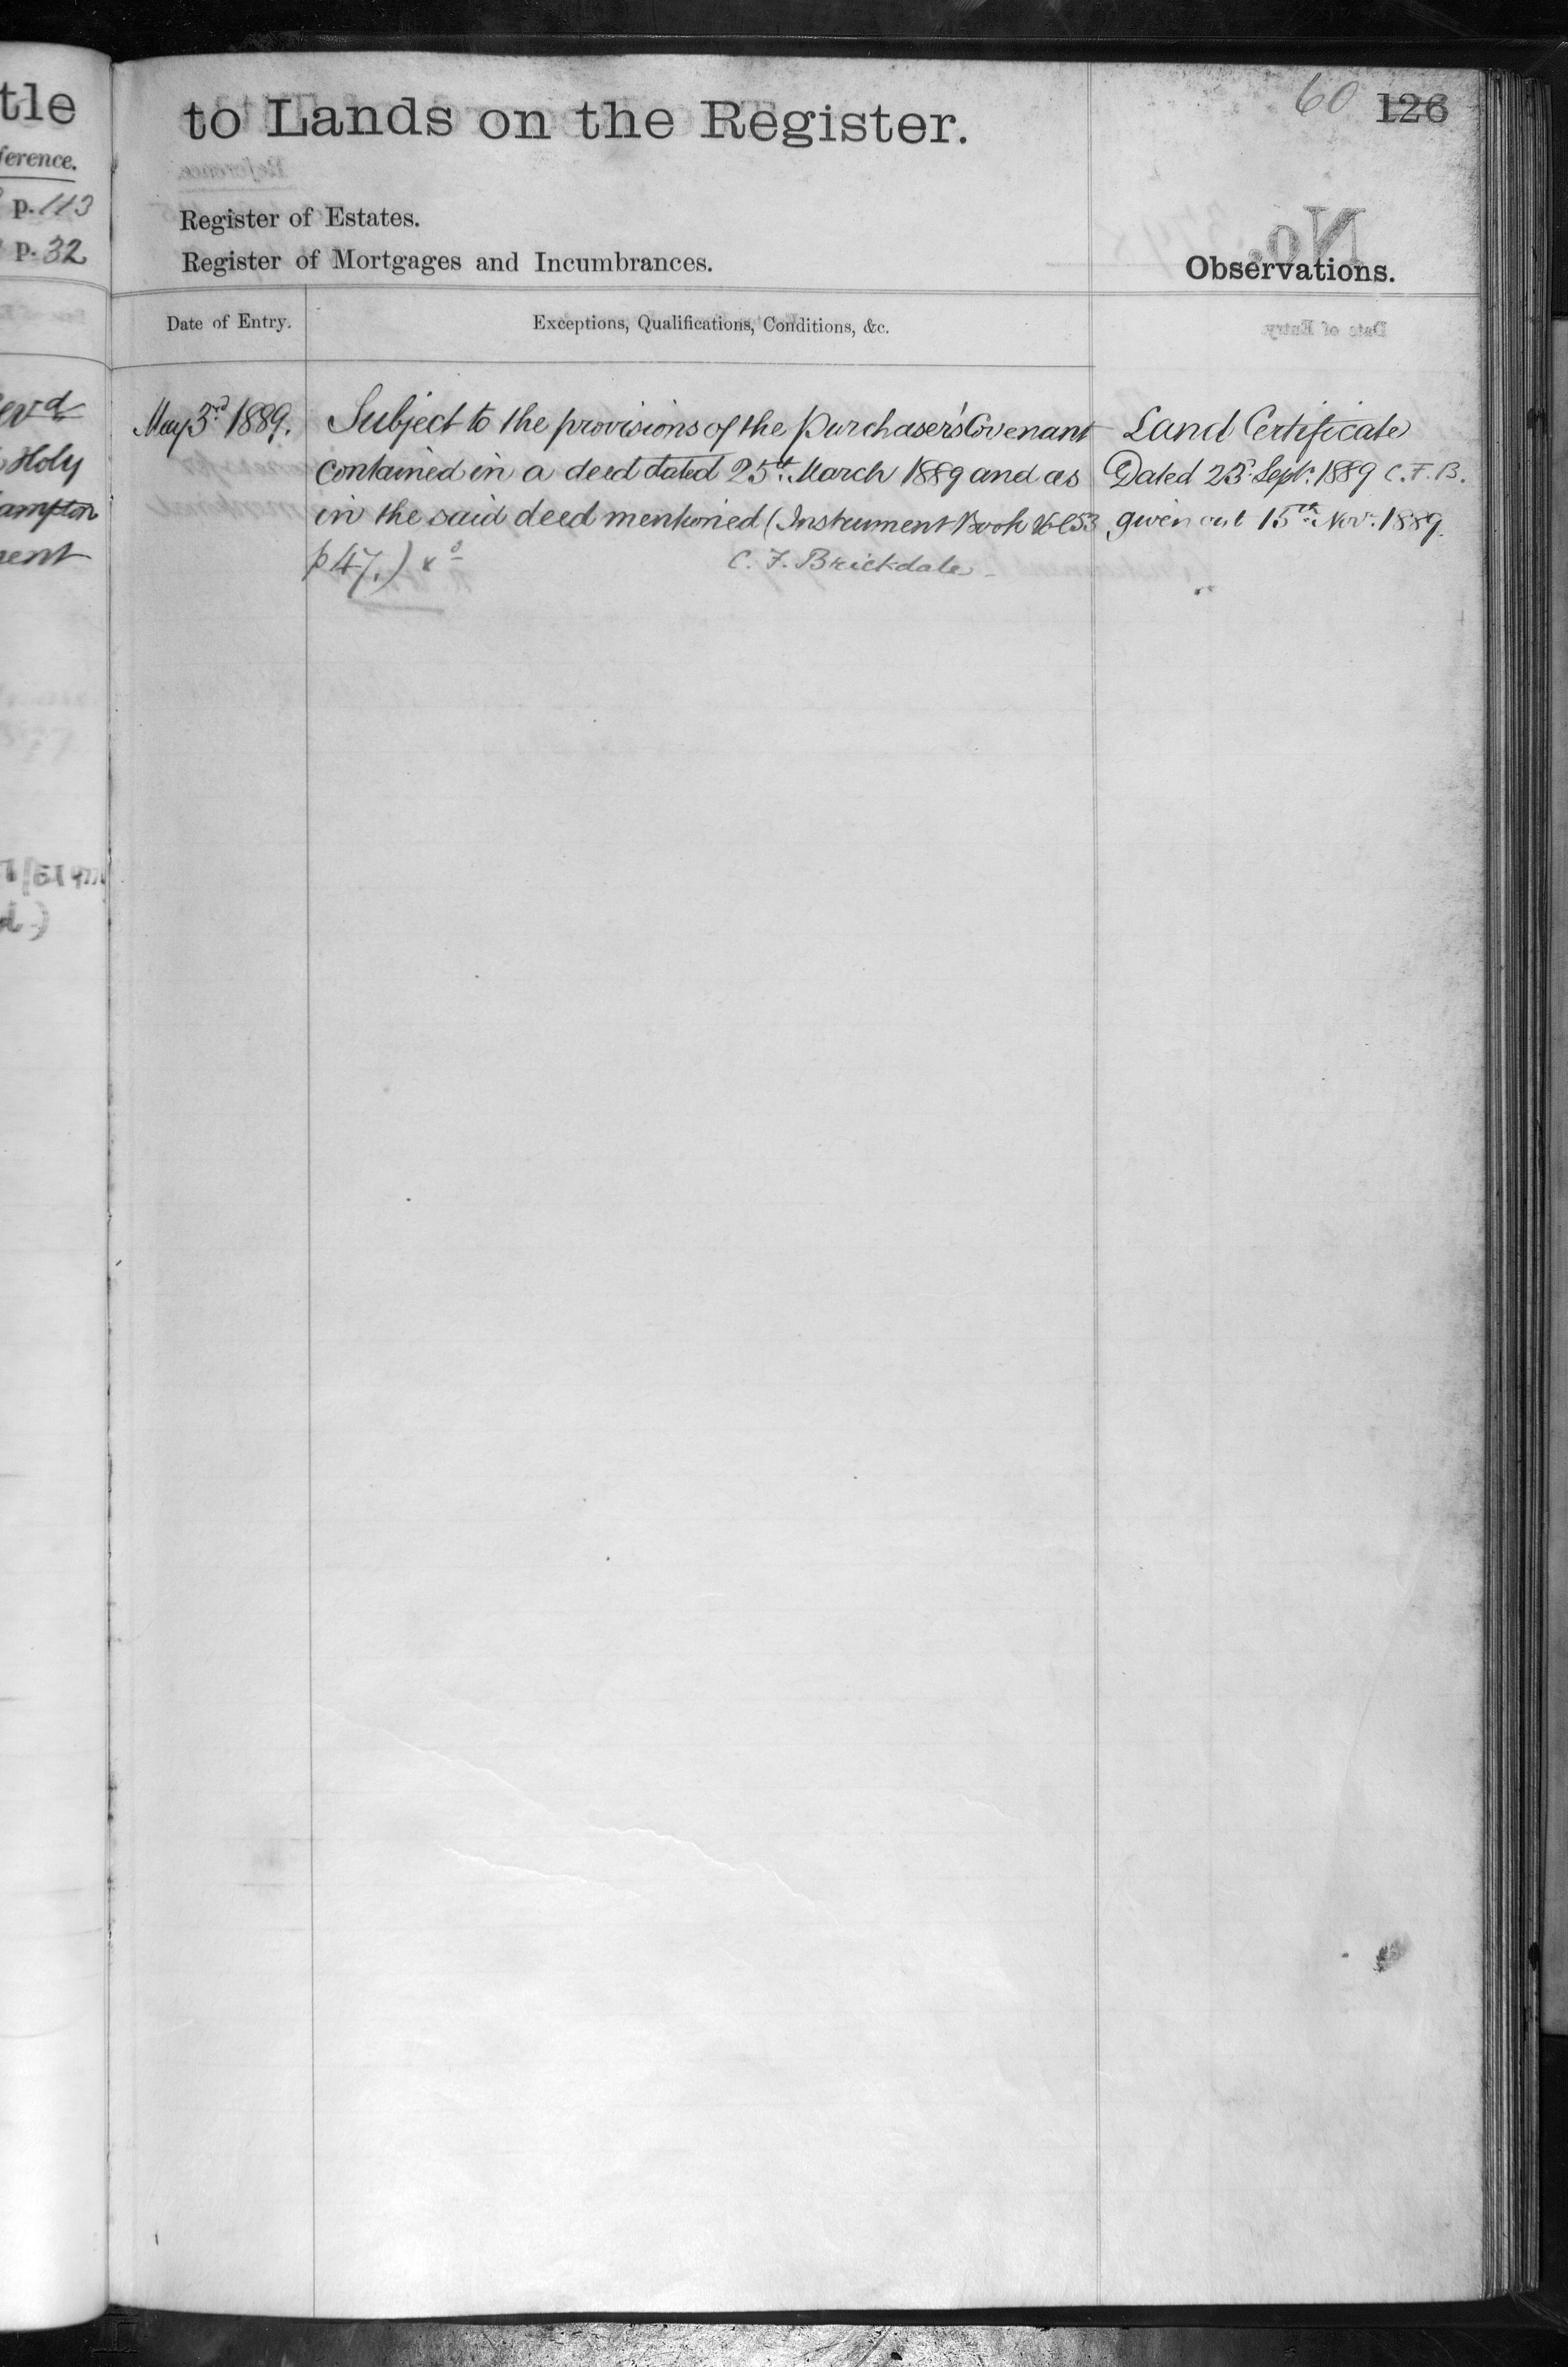 tle
ference.
p. 113
p. 32
Holy
ampton
ent
to Lands on the Register.
60 126
Register of Estates.
Register of Mortgages and Incumbrances.
Observations.
Date of Entry.
Exceptions, Qualifications, Conditions, &c.
May 3rd 1889.
Subject to the provisions of the Purchaser's Covenant
contained in a deed dated 25th March 1889 and as
in the said deed mentioned (Instrument Book Vol 53
p 47.)
C. F. Brickdale
Land Certificate
Dated 23d Sept. 1889 C. F. B.
given out 15th Nov. 1889.